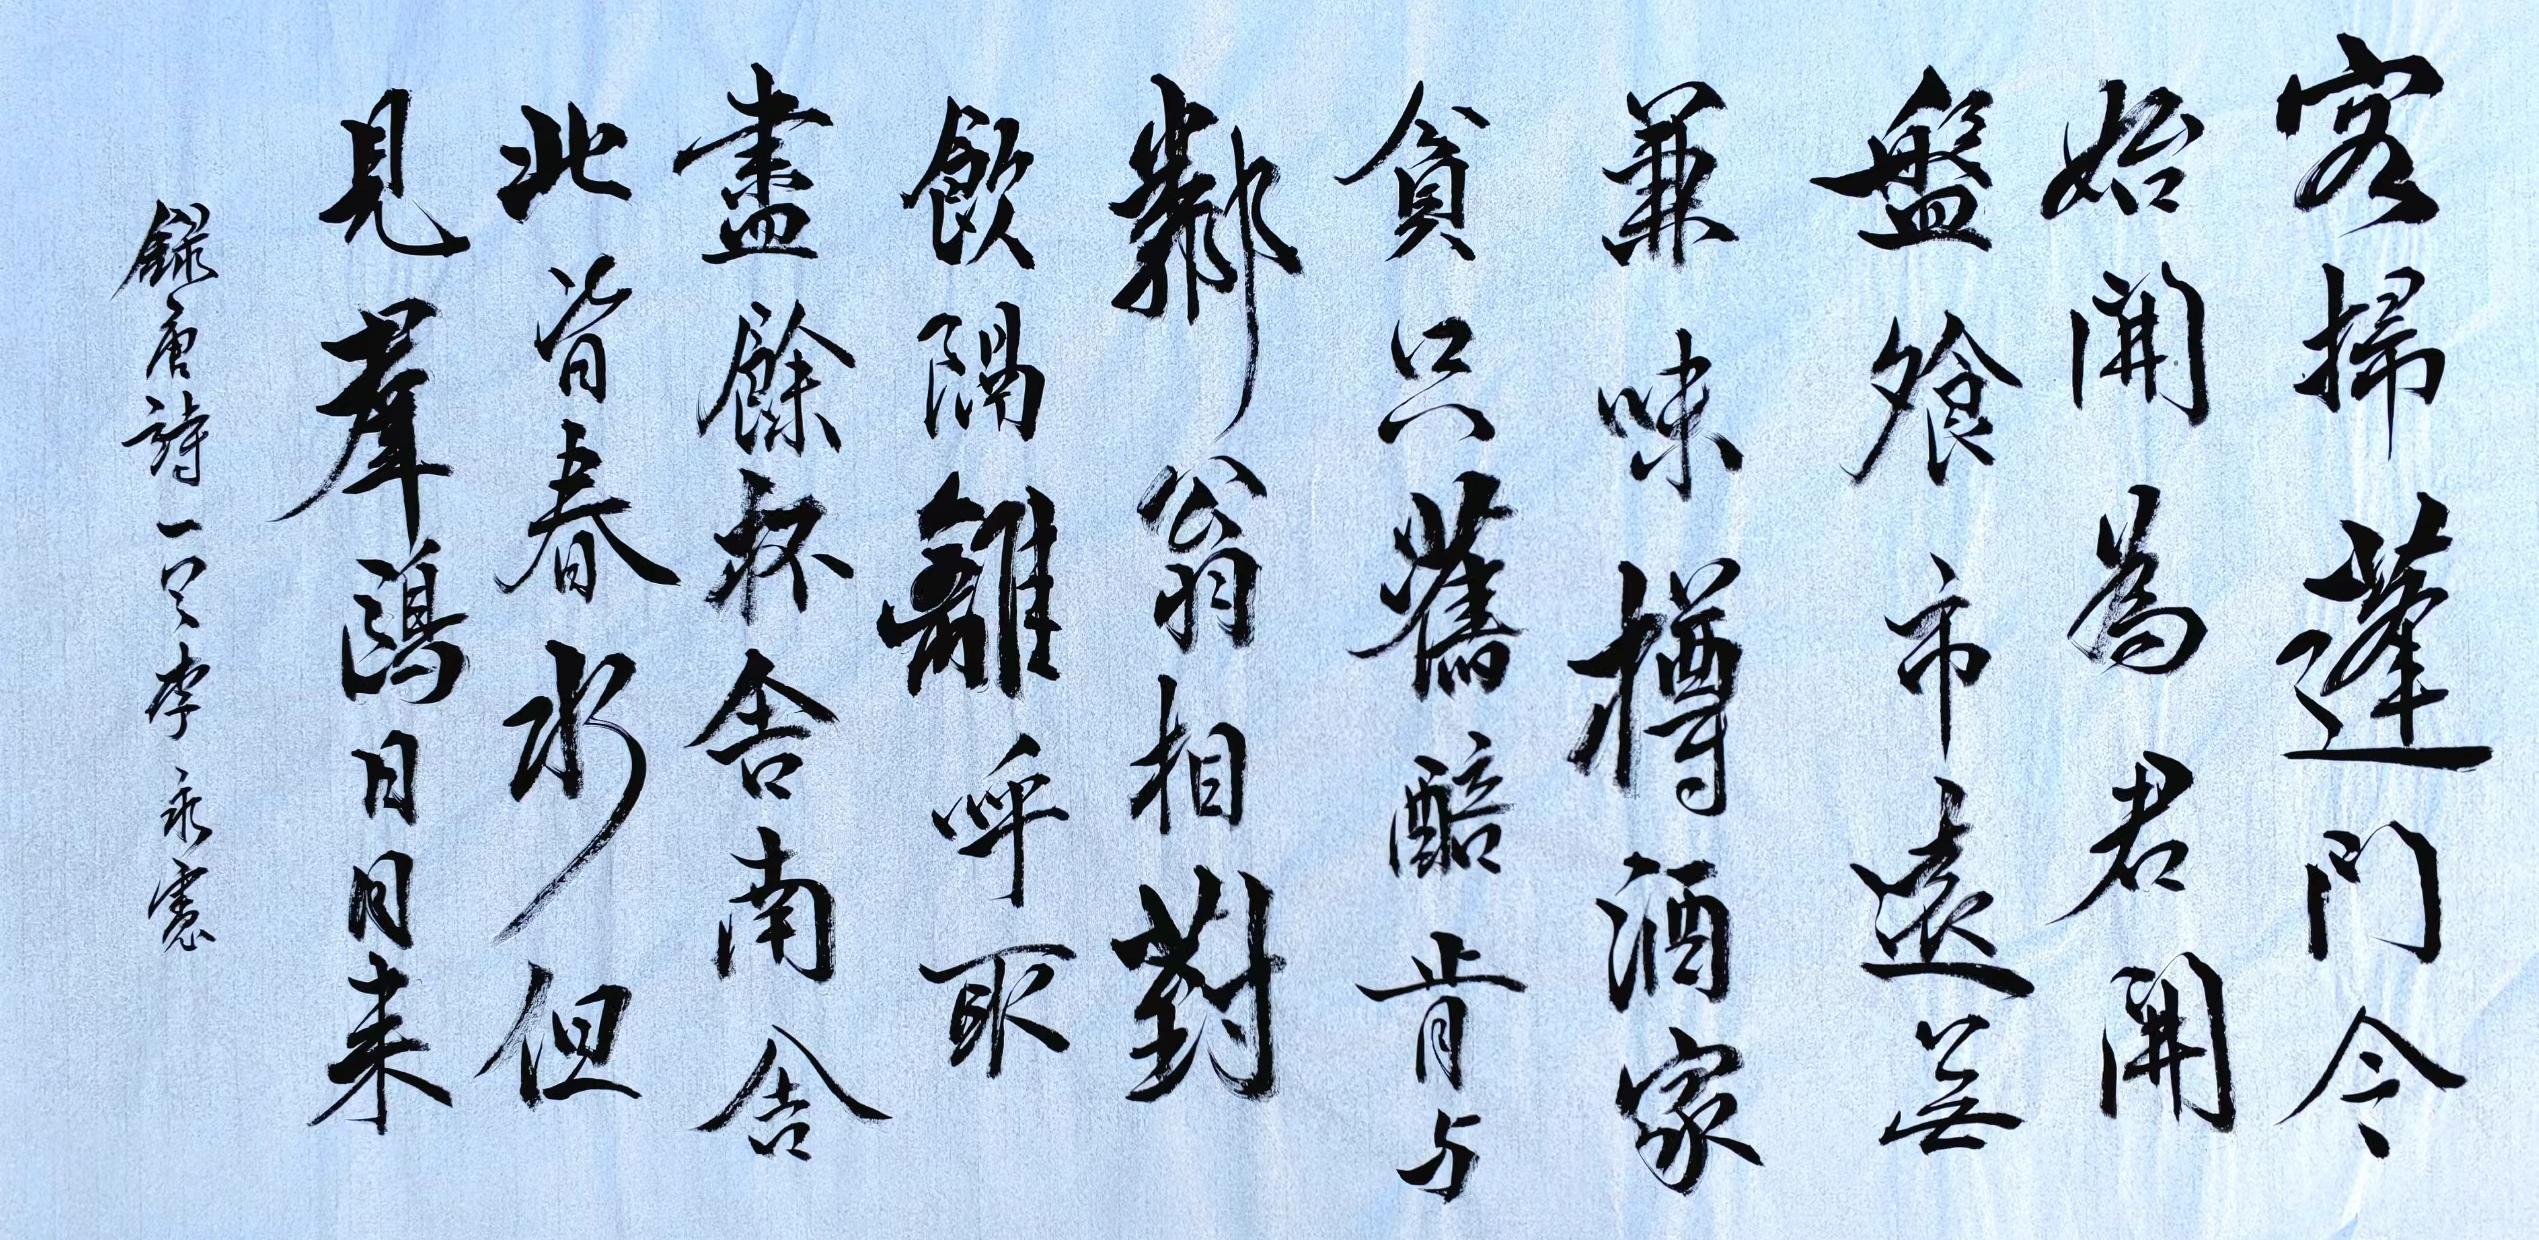 客掃蓬門今
始開為君開
盤飧市遠無
兼味樽酒家
貧只舊醅肯与
鄰翁相對
飲隔離呼取
盡餘杯舍南舍
北皆春水但
見羣鷗日日来
錄唐詩一首李永憲